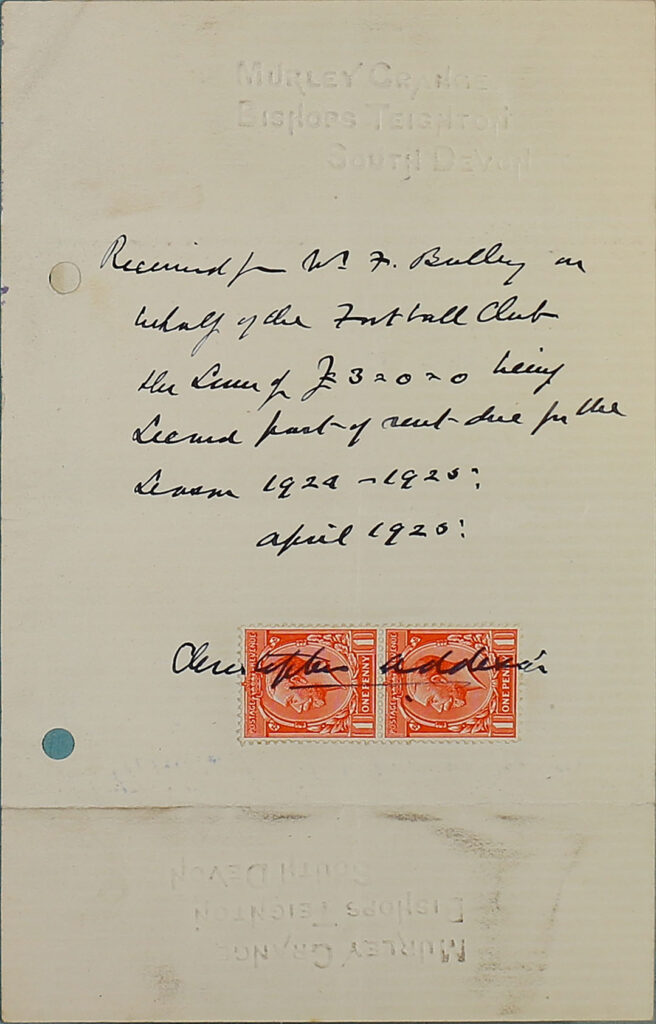 MURLEY GRANGE
BISHOPS TEIGNTON
SOUTH DEVON
Received from Mr F. Bulley on
behalf of the Football Club
the Sum of £3=0=0 being
Second part of rent due for the
Season 1924-1925:
April 1925:
Christopher Addison
POSTAGE REVENUE
ONE PENNY
POSTAGE REVENUE
ONE PENNY
SOUTH DEVON
BISHOPS TEIGNTON
MURLEY GRANGE